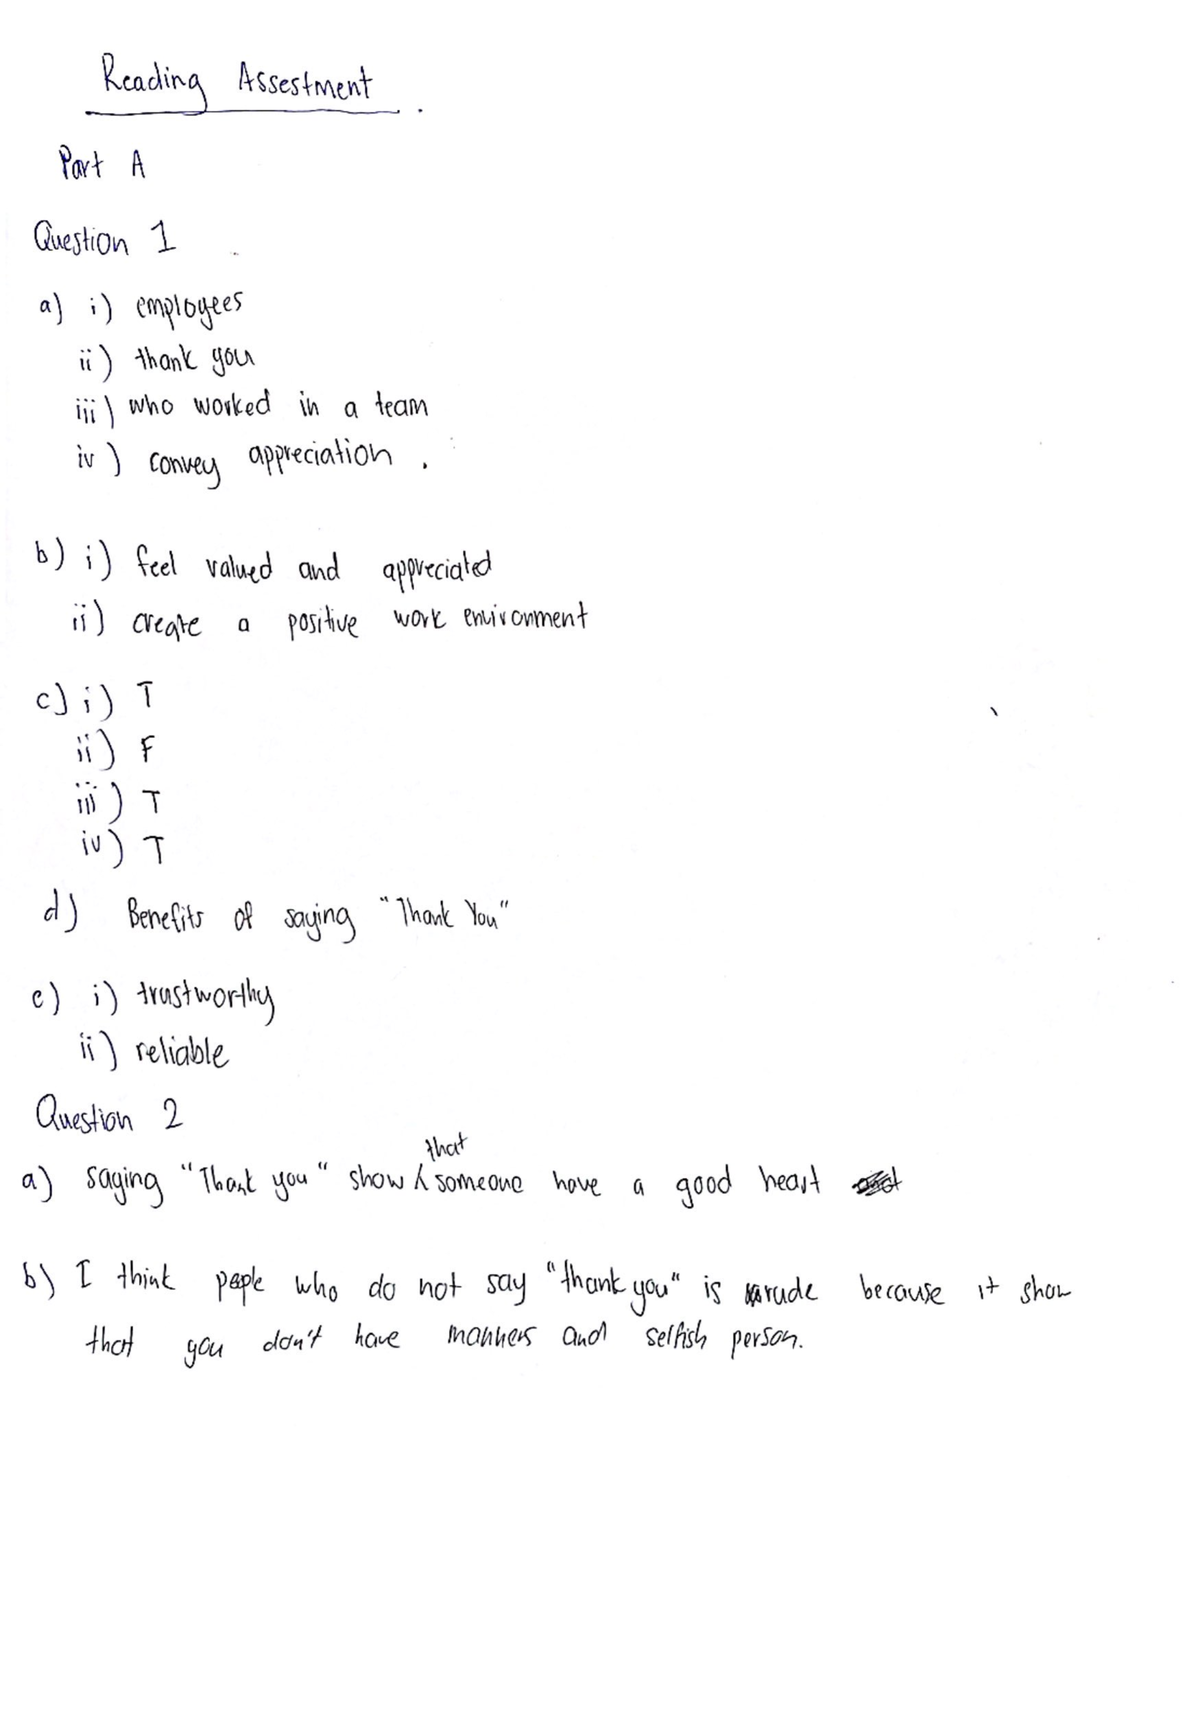 Reading Assestment
Part A
Question 1
a) i) employees
ii) thank you
iii) who worked in a team
iv) convey appreciation.
b) i) feel valued and appreciated
ii) create a positive work environment
c) i) T
ii) F
iii) T
iv) T
d) Benefits of saying "Thank You"
e) i) trustworthy
ii) reliable
Question 2
a) saying "Thank you" show that someone have a good heart
b) I think people who do not say "thank you" is rude because it show
that you don't have manners and selfish person.